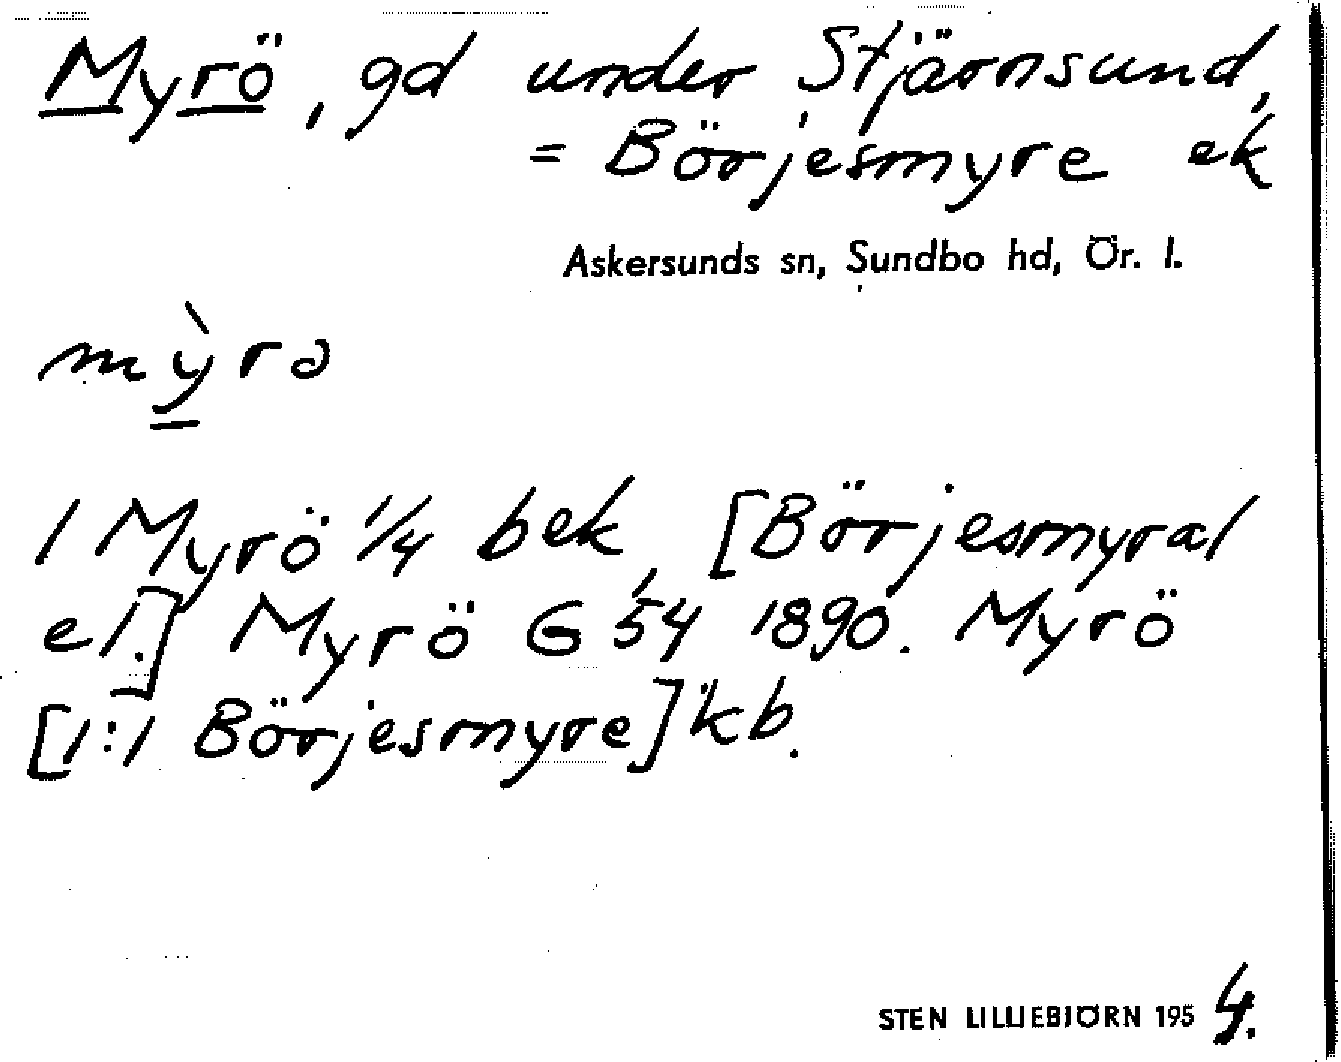 Myrö, gd under Stjärnsund,
= Börjesmyre ek
Askersunds sn, Sundbo hd, Ör. l.
mỳrə
1 Myrö 1/4 bek, [Börjesmyral
el.] Myrö G 54 1890. Myrö
[1:1 Börjesmyre] kb.
STEN LILLIEBJÖRN 1954.